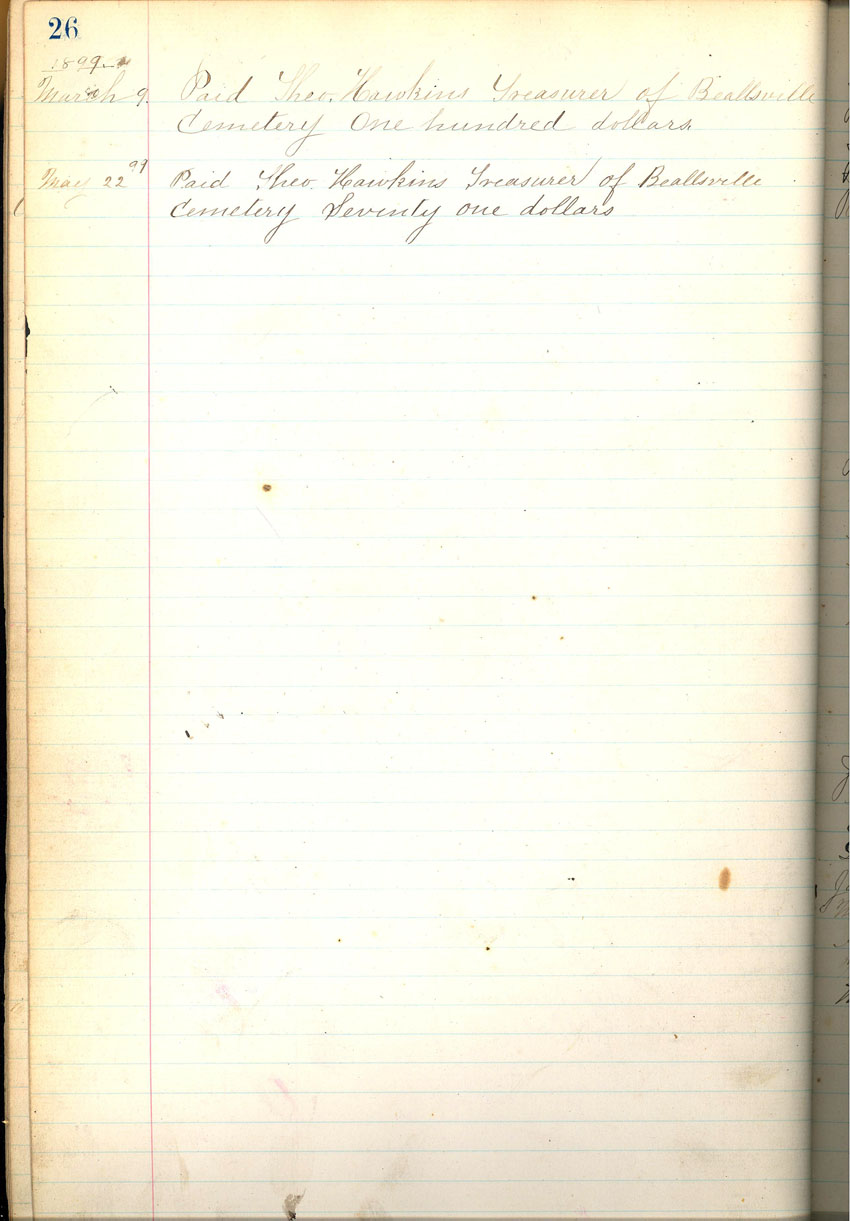 26
1899.
March 9. Paid Theo. Hawkins Treasurer of Beallsville
Cemetery One hundred dollars.
May 22 99 Paid Theo. Hawkins Treasurer of Beallsville
Cemetery Seventy one dollars